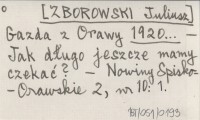 [ZBOROWSKI Juliusz]
Gazda z Orawy 1920... -
Jak długo jeszcze mamy
czekać? - Nowiny Spisko-
-Orawskie 2, nr 10: 1.